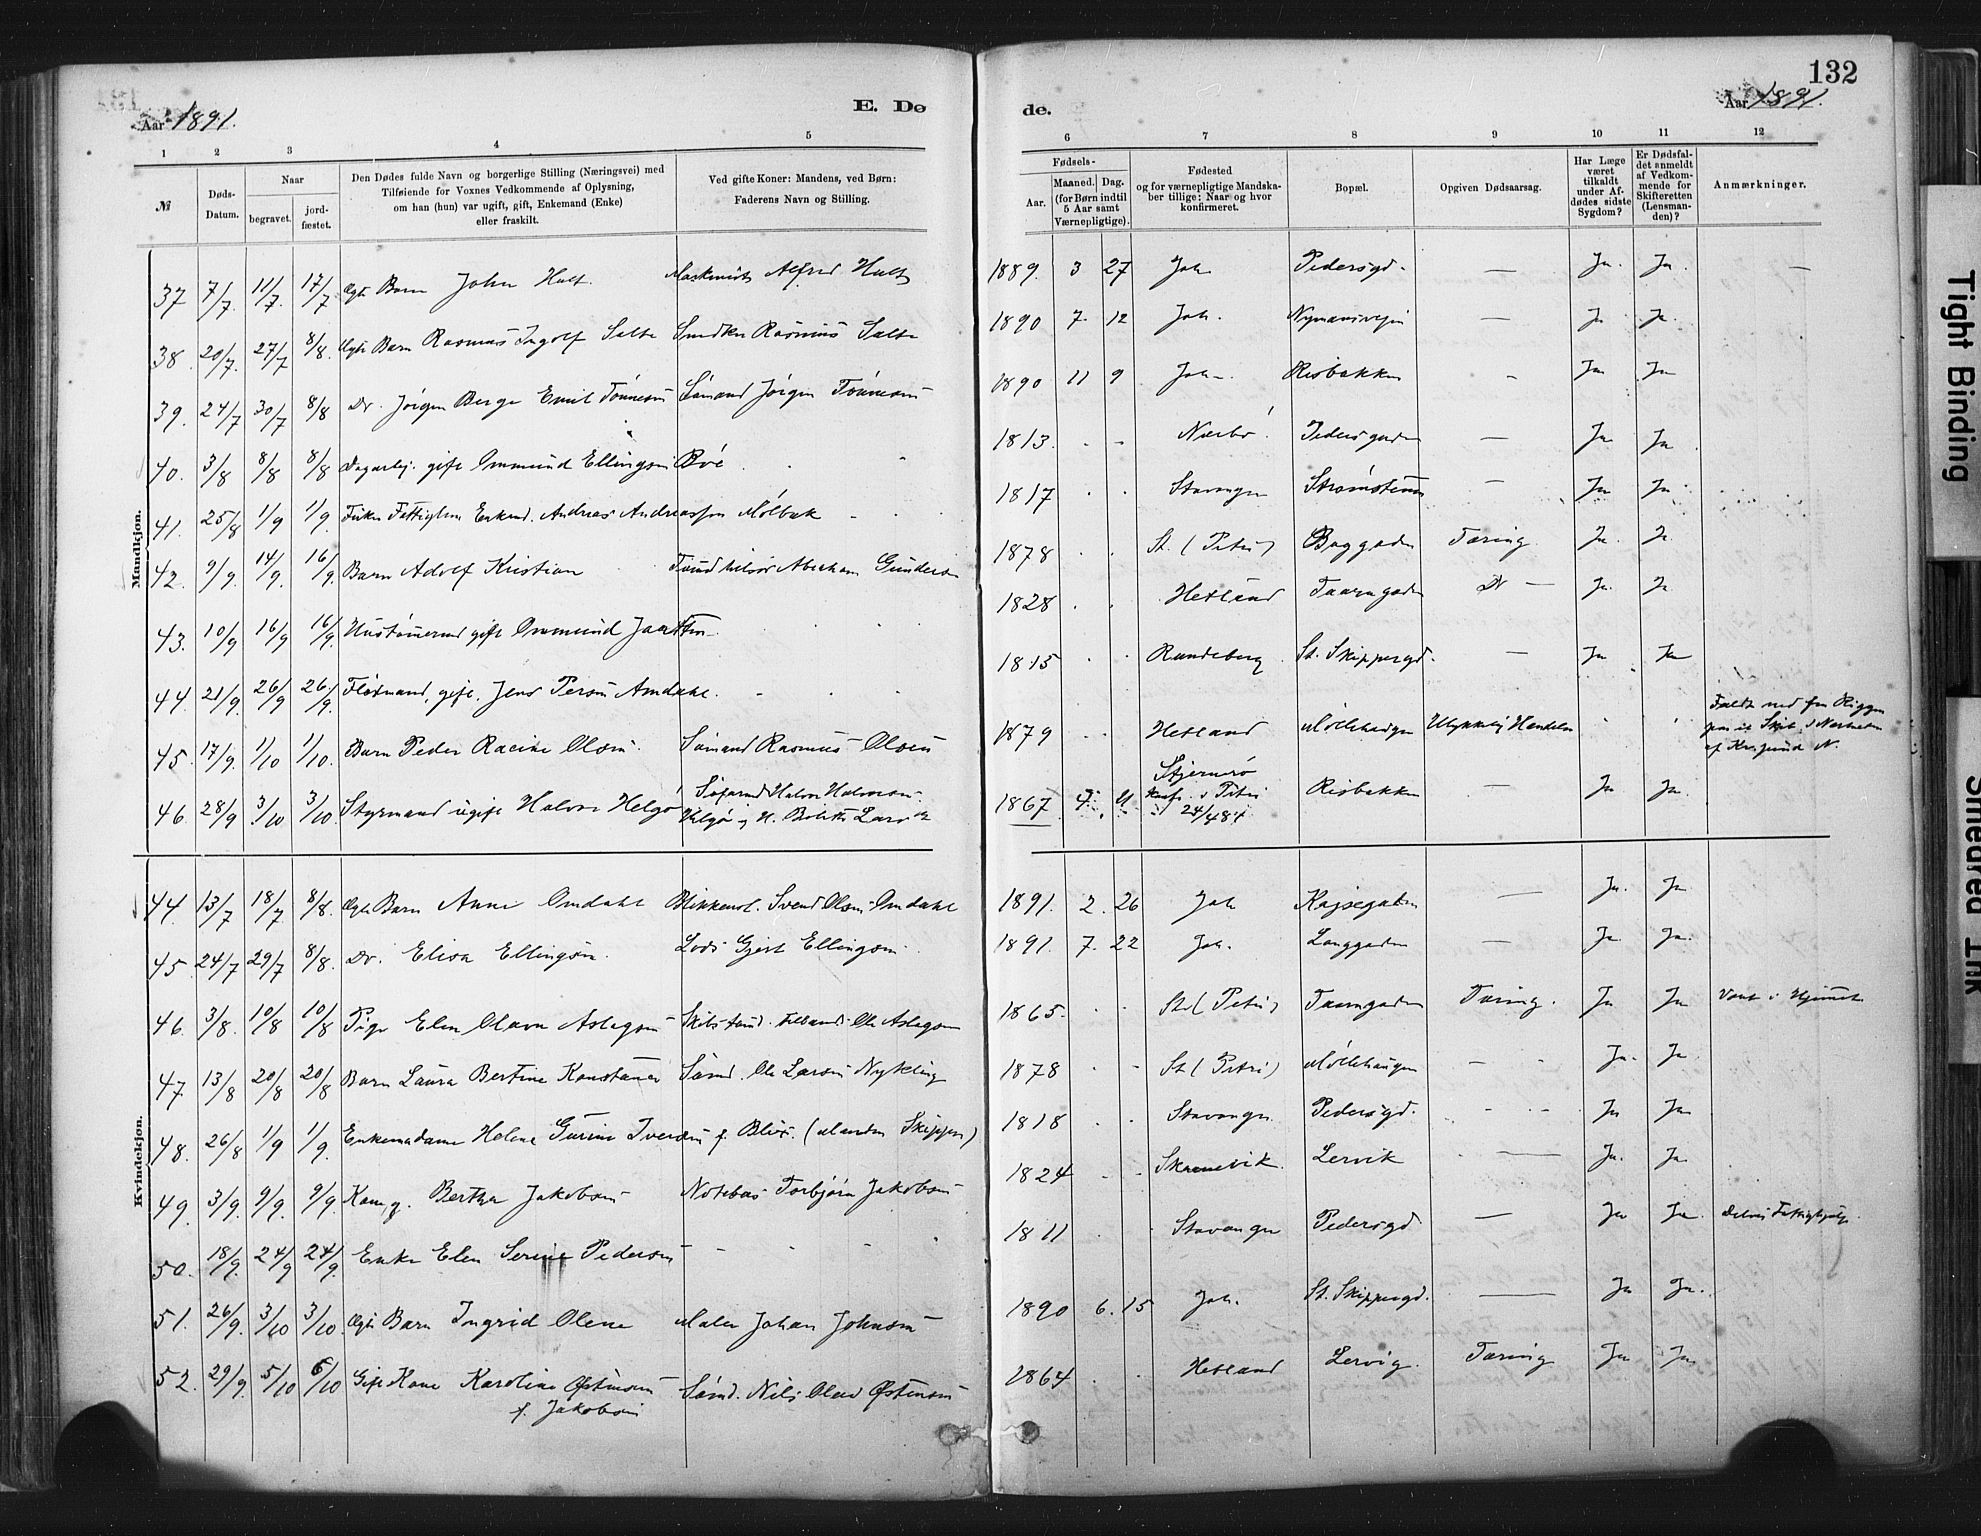 132
Aar 1891. E. Dø de. Aar 1891.
1 2 3 4 5 6 7 8 9 10 11 12
№ Døds-Datum. Naar begravet. jordfæstet. Den Dødes fulde Navn og borgerlige Stilling (Næringsvei) med Tilføiende for Voxnes Vedkommende af Oplysning, om han (hun) var ugift, gift, Enkemand (Enke) eller fraskilt. Ved gifte Koner: Mandens, ved Børn: Faderens Navn og Stilling. Fødsels- Aar. Maaned. Dag. (for Børn indtil 5 Aar samt Værnepligtige). Fødested og for værnepligtige Mandskaber tillige: Naar og hvor konfirmeret. Bopæl. Opgiven Dødsaarsag. Har Læge været tilkaldt under Afdødes sidste Sygdom? Er Dødsfaldet anmeldt af Vedkommende for Skifteretten (Lensmanden)? Anmærkninger.
Mandkjøn.
37 7/7 11/7 17/7 Ægte Barn John Hult. Maskinist Alfred Hult 1889. 3 27 Joh. Pedersgd. — Ja. Ja. —
38. 20/7. 27/7 8/8. Ægte Barn Rasmus Ingolf Salte Rasmus Salte 1890 7. 12 Joh. — Ja Ja.
39. 24/7 30/7 8/8 Do. Jørgen Berge Emil Tønnesen Sømand Jørgen Tønnesen 1890 11 9 Joh. Risbakken — Ja Ja
40. 3/8 8/8 8/8 Dagarbej. gift Ommund Ellingsen Bøe 1813. - - Nærbø. Pedersgaden — Ja Ja
41. 25/8 1/9 1/9 Enkmd. Andreas Andreassen Mølbak 1817 . . Stavanger Strømsteen — Ja Ja
42. 9/9. 14/9. 16/9. Barn Adolf Kristian Abraham Gundersen 1878 . . St. (Petri) Baggaden Tæring. Ja. Ja
43. 10/9 16/9 16/9. gift Ommund Jaatten 1828 . . Hetland Taarngaden Do — Ja. Ja
44. 21/9. 26/9 26/9. gift. Jens Persen Amdahl. 1815 . . Randeberg St. Skippergd. — Ja Ja
45. 17/9. 1/10 1/10. Barn Peder Racine Olsen. Sømand Rasmus Olsen 1879 . . Hetland Møllehaugen Ulykkelig Hændelse . . Faldt ned fra Riggen Skib i Nærheden af N.
46. 28/9 3/10 3/10. Styrmand ugift Halvor Helgø Halvor Halvorsen Helgø 1867 4. Stjernerø Konf. i Petri 24/4 84 Risbakken — Ja Ja.
Kvindekjøn.
44. 13/7 18/7 8/8. Ægte Barn Anna Omdahl Blikkensl. Svend Olsen Omdahl 1891. 2. 26 Joh Kajsegaden — Ja. Ja
45. 24/7 29/7 8/8. Do. Elisa Ellingsen. Lods Gjert Ellingsen. 1891. 7. 22 Joh. Langgaden — Ja. Ja.
46. 3/8. 10/8 10/8 Pige Elen Olava Aslagsen Ole Aslagsen 1865. . . St. (Petri) Taarngaden Tæring. Ja Ja
47. 13/8 20/8 20/8 Barn Laura Bertine Konstance Sømd. Ole Larsen Nykling 1878 . - St. (Petri) Møllehaugen — Ja. Ja.
48. 26/8 1/9 1/9. Enkemadame Helene Gurine Iversen f. Blix. (Manden Skipper) 1818 . . Stavanger Pedersgd. - Ja Ja
49. 3/9. 9/9. 9/9. Kone, g. Bertha Jakobsen Torbjørn Jakobsen 1824 . - Skaanevik. Lervik — Ja. Ja
50. 18/9. 24/9 24/9. Enke Elen Serine Pedersen - - - - 1811 . . Stavanger Pedersgd — Ja Ja.
51. 26/9. 3/10 3/10. Ægte Barn Ingrid Olene Maler Johan Johnsen 1890 6. 15 Joh. St. Skippergd. — Ja Ja.
52. 29/9. 5/10 6/10 Gift Kone Karoline Østensen f. Jakobsen Sømd. Nils Olav Østensen 1864 . . Hetland Lervig. Tæring Ja Ja
Tight Binding
Smeared Ink